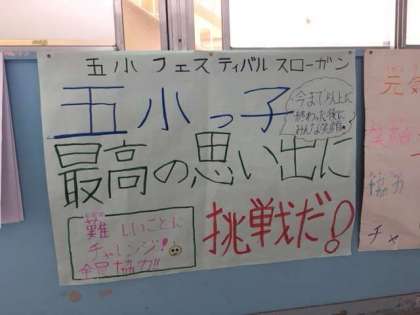 五小フェスティバルスローガン
五小っ子
今まで以上に
終わった後に
みんな笑顔
最高の思い出に
挑戦だ!
難しいことに
チャレンジ!
全員協力!!
元気
協力
チャ